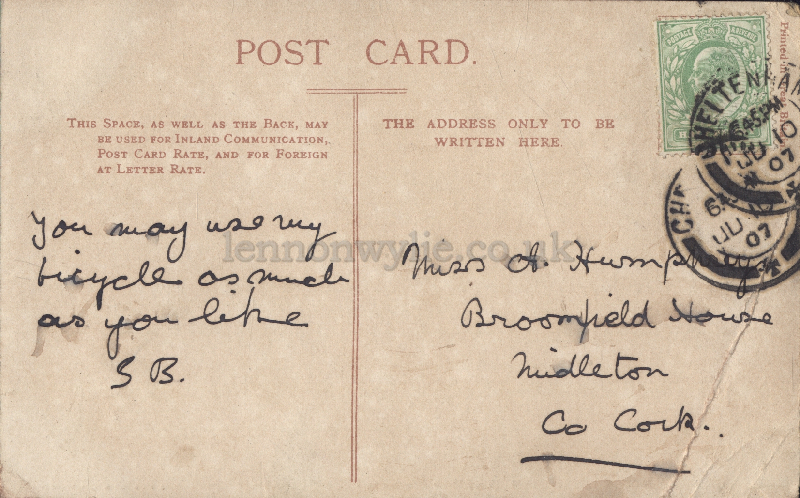 POST CARD.
THIS SPACE, AS WELL AS THE BACK, MAY
BE USED FOR INLAND COMMUNICATION,
POST CARD RATE, AND FOR FOREIGN
AT LETTER RATE.
THE ADDRESS ONLY TO BE
WRITTEN HERE.
You may use my
bicycle as much
as you like
S B.
Miss A. Humphrys
Broomfield House
Midleton
Co Cork.
CHELTENHAM
6.45 PM
JU 10
07
JU 10
07
POSTAGE
Printed in
lennonwylie.co.uk